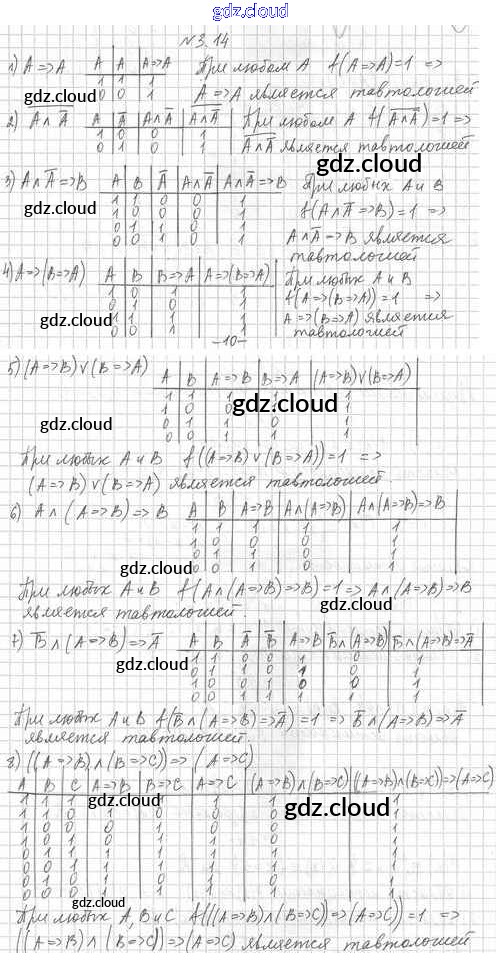 gdz.cloud
№3.14
1) A=>A
A A A=>A
1 1 1
0 0 1
При любом A f(A=>A)=1 =>
A=>A является тавтологией
gdz.cloud
2) A∧A̅
A A̅ A∧A̅ A∧A̅
1 0 0 1
0 1 0 1
При любом A f(A∧A̅)=1 =>
A∧A̅ является тавтологией
gdz.cloud
3) A∧A̅=>B
A B A̅ A∧A̅ A∧A̅=>B
1 1 0 0 1
1 0 0 0 1
0 1 1 0 1
0 0 1 0 1
При любых A и B
f(A∧A̅=>B)=1 =>
A∧A̅=>B является
тавтологией
gdz.cloud
gdz.cloud
4) A=>(B=>A)
A B B=>A A=>(B=>A)
1 0 1 1
0 1 0 1
1 1 1 1
0 0 1 1
При любых A и B
f(A=>(B=>A))=1 =>
A=>(B=>A) является
тавтологией
gdz.cloud
gdz.cloud
-10-
5) (A=>B)∨(B=>A)
A B A=>B B=>A (A=>B)∨(B=>A)
1 1 1 1 1
1 0 0 1 1
0 1 1 0 1
0 0 1 1 1
gdz.cloud
gdz.cloud
При любых A и B f((A=>B)∨(B=>A))=1 =>
(A=>B)∨(B=>A) является тавтологией.
6) A∧(A=>B)=>B
A B A=>B A∧(A=>B) A∧(A=>B)=>B
1 1 1 1 1
1 0 0 0 1
0 1 1 0 1
0 0 1 0 1
gdz.cloud
При любых A и B f(A∧(A=>B)=>B)=1 => A∧(A=>B)=>B
является тавтологией.
gdz.cloud
7) B̅∧(A=>B)=>A̅
A B A̅ B̅ A=>B B̅∧(A=>B) B̅∧(A=>B)=>A̅
1 1 0 0 1 0 1
0 1 1 0 1 0 1
1 0 0 1 0 0 1
0 0 1 1 1 1 1
gdz.cloud
При любых A и B f(B̅∧(A=>B)=>A̅)=1 => B̅∧(A=>B)=>A̅
является тавтологией.
8) ((A=>B)∧(B=>C))=>(A=>C)
A B C A=>B B=>C A=>C (A=>B)∧(B=>C) ((A=>B)∧(B=>C))=>(A=>C)
gdz.cloud
gdz.cloud
gdz.cloud
При любых A, B и C f(((A=>B)∧(B=>C))=>(A=>C))=1 =>
((A=>B)∧(B=>C))=>(A=>C) является тавтологией